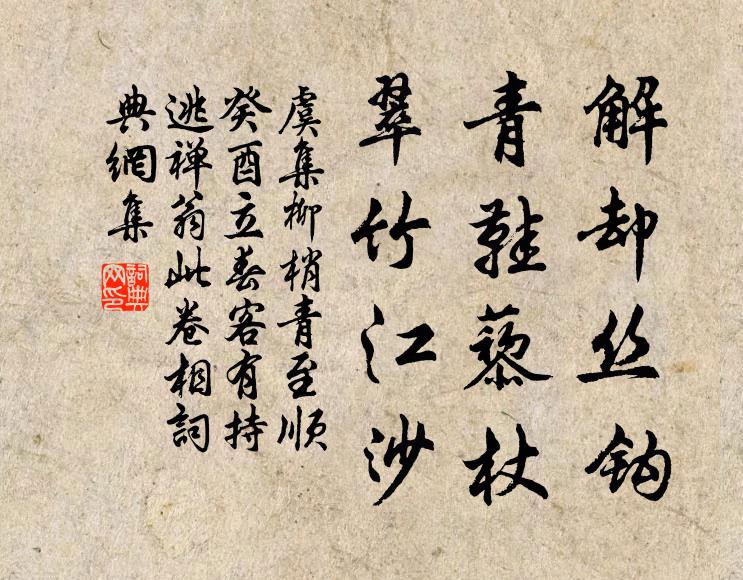 解却丝钩
青鞋藜杖
翠竹江沙
虞集柳梢青至顺
癸酉立春客有持
逃禅翁此卷相詞
典網集
詞典
网印